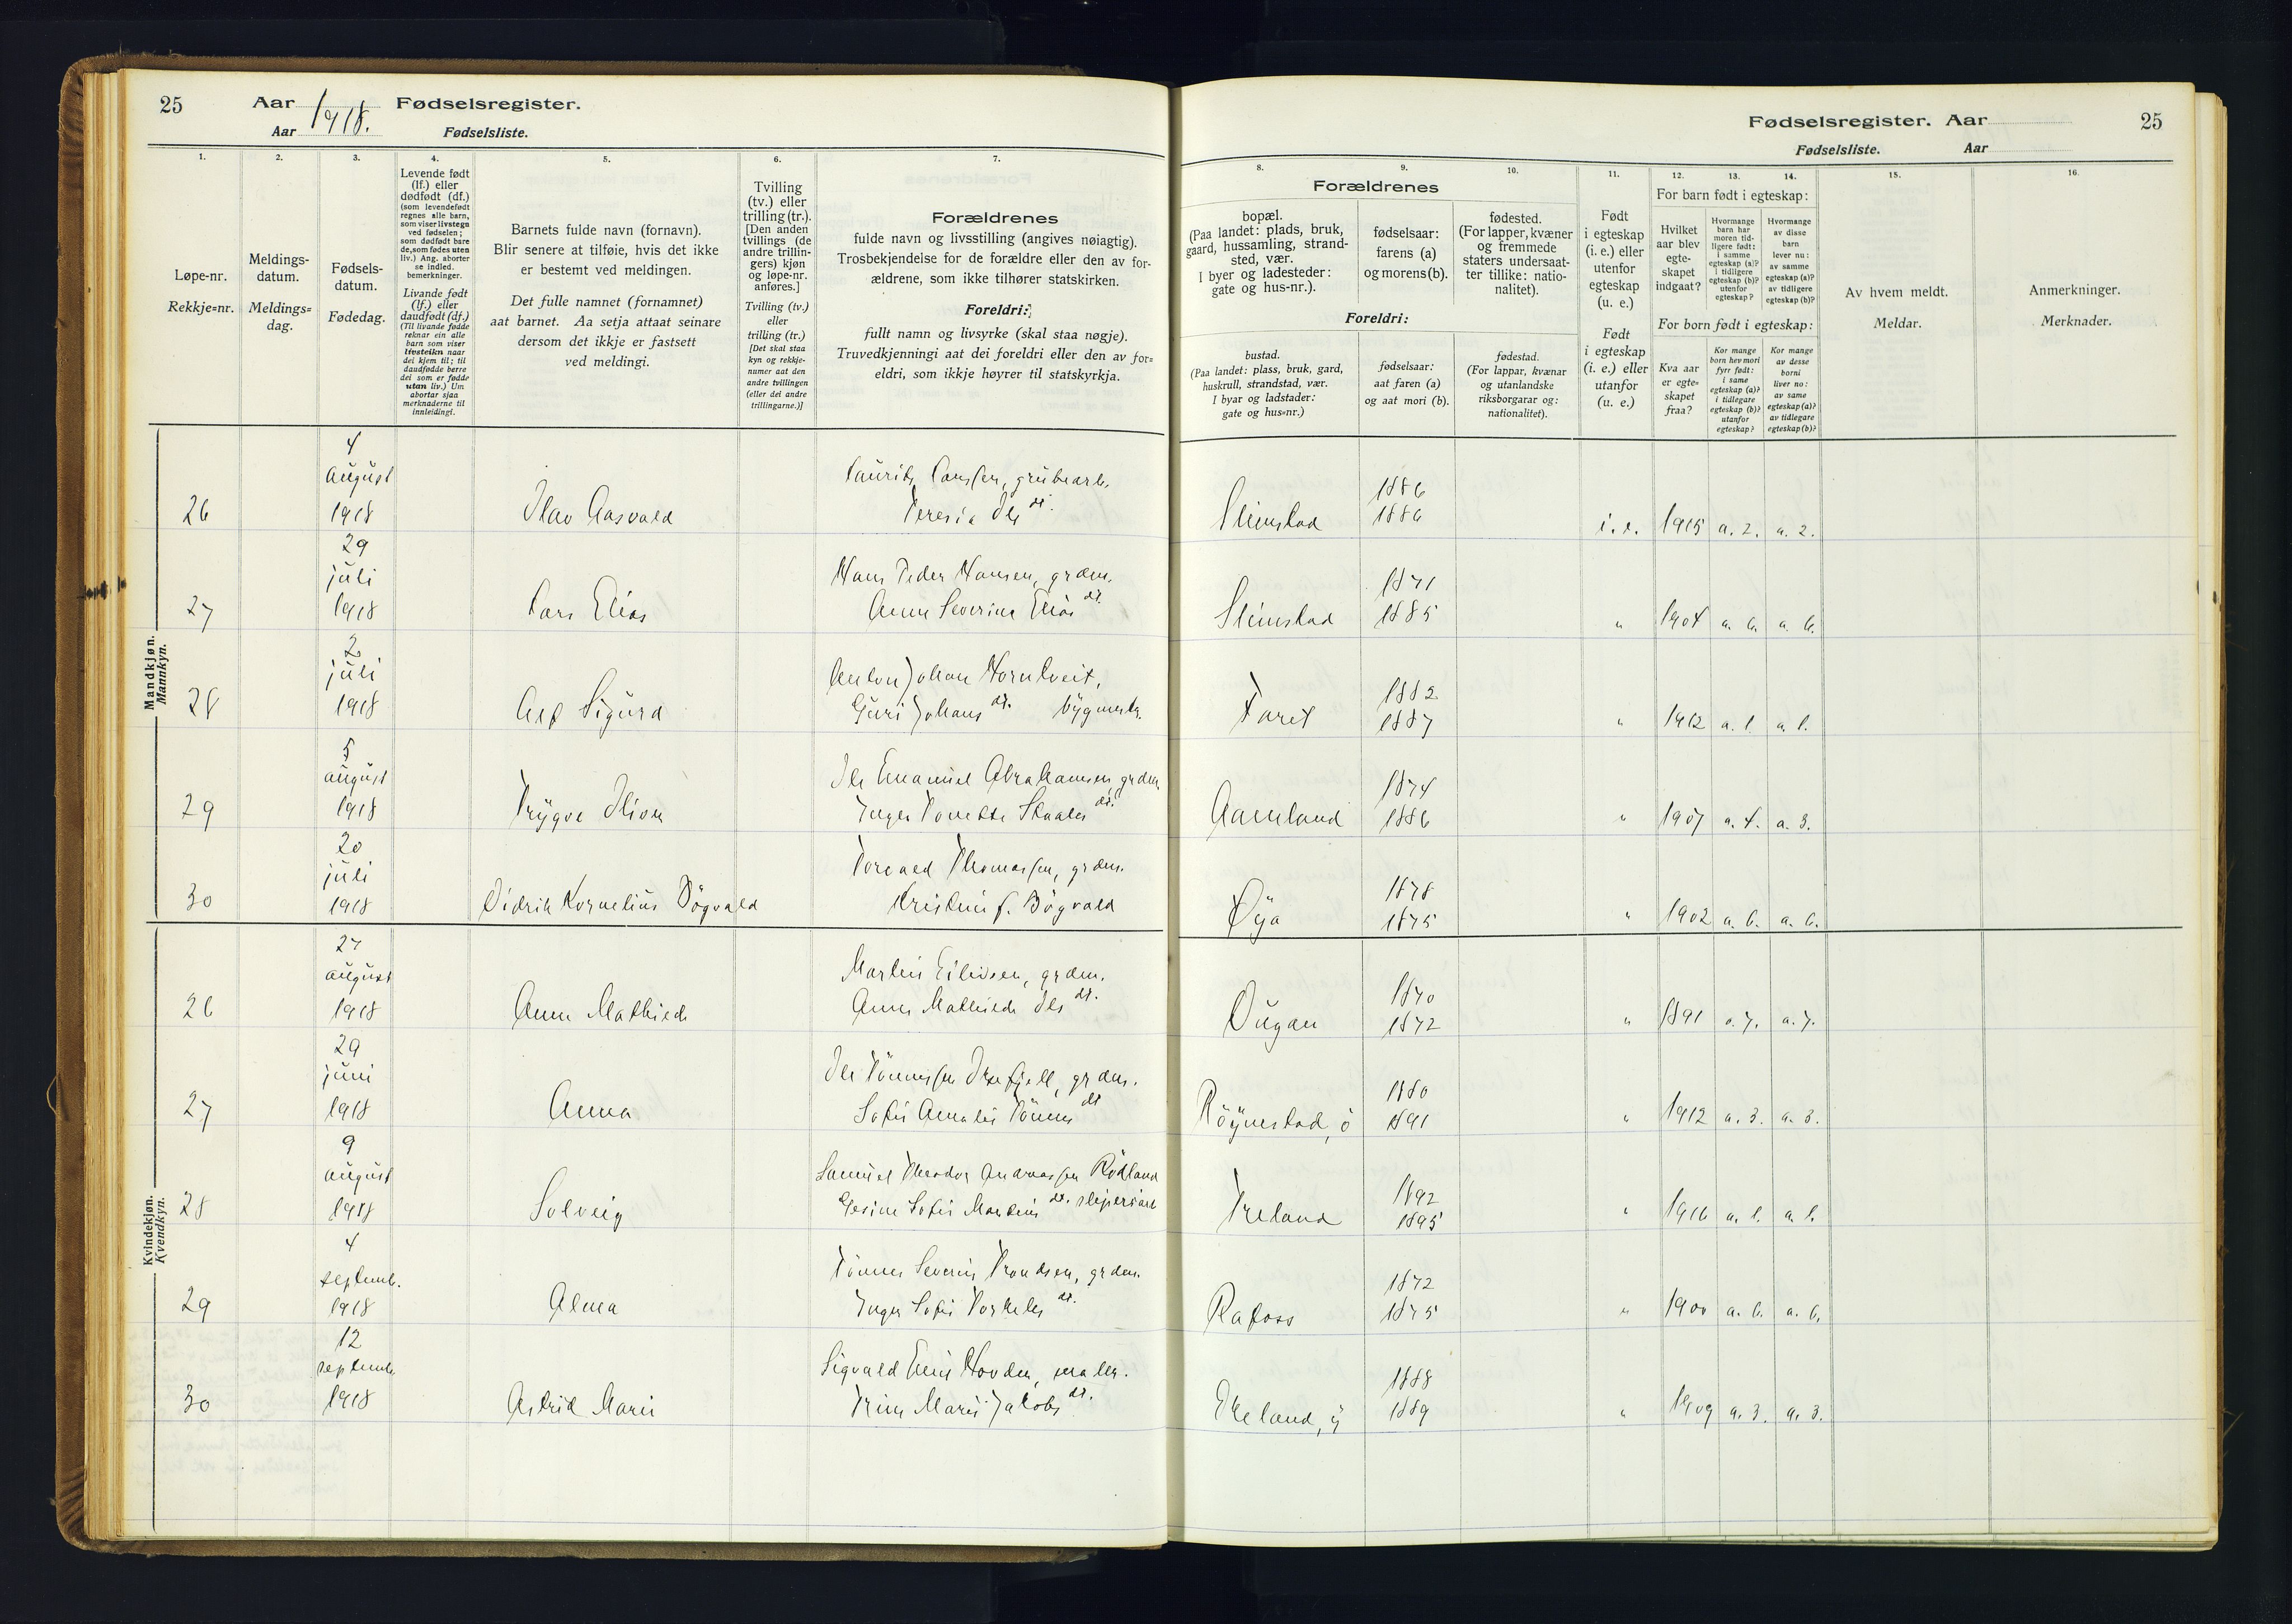 25 Aar 1918. Fødselsregister.
Aar Fødselsliste.
Fødselsregister. Aar 25
Fødselsliste. Aar
1.
Løpe-nr.
Rekkje=nr.
2.
Meldings-
datum.
Meldings=
dag.
3.
Fødsels-
datum.
Fødedag.
4.
Levende født
(lf.) eller
dødfødt (df.)
(som levendefødt
regnes alle barn,
som viser livstegn
ved fødselen;
som dødfødt bare
de, som fødes uten
liv.) Ang. aborter
se indled.
bemerkninger.
Livande født
(lf.) eller
daudfødt (df.)
(Til livande fødde
reknar ein alle
barn som viser
livsteikn naar
dei kjem til; til
daudfødde berre
dei som er fødde
utan liv.) Um
abortar sjaa
merknaderne til
innleidingi.
5.
Barnets fulde navn (fornavn).
Blir senere at tilføie, hvis det ikke
er bestemt ved meldingen.
Det fulle namnet (fornamnet)
aat barnet. Aa setja attaat seinare
dersom det ikkje er fastsett
ved meldingi.
6.
Tvilling
(tv.) eller
trilling (tr.).
[Den anden
tvillings (de
andre trillin-
gers) kjøn
og løpe-nr.
anføres.]
Tvilling (tv.)
eller
trilling (tr.)
[Det skal staa
kyn og rekkje-
numer aat den
andre tvillingen
(eller dei andre
trillingarne.)]
7.
Forældrenes
fulde navn og livsstilling (angives nøiagtig).
Trosbekjendelse for de forældre eller den av for-
ældrene, som ikke tilhører statskirken.
Foreldri:
fullt namn og livsyrke (skal staa nøgje).
Truvedkjenningi aat dei foreldri eller den av for=
eldri, som ikkje høyrer til statskyrkja.
8.
Forældrenes
bopæl.
(Paa landet: plads, bruk,
gaard, hussamling, strand-
sted, vær.
I byer og ladesteder:
gate og hus-nr.).
Foreldri:
bustad.
(Paa landet: plass, bruk, gard,
huskrull, strandstad, vær.
I byar og ladstader:
gate og hus=nr.)
9.
fødselsaar:
farens (a)
og morens (b).
fødselsaar:
aat faren (a)
og aat mori (b).
10.
fødested.
(For lapper, kvæner
og fremmede
staters undersaat-
ter tillike: natio-
nalitet).
fødestad.
(For lappar, kvænar
og utanlandske
riksborgarar og:
nationalitet).
11.
Født
i egteskap
(i. e.) eller
utenfor
egteskap
(u. e.)
Født
i egteskap
(i. e.) eller
utanfor
(u. e.)
12. 13. 14.
For barn født i egteskap:
Hvilket
aar blev
egte-
skapet
indgaat?
Hvormange
barn har
moren tid-
ligere født:
i samme
egteskap (a)?
i tidligere
egteskap (b)?
utenfor
egteskap?
Hvormange
av disse
barn
lever nu:
av samme
egteskap (a)?
av tidligere
egteskap (b)?
For born født i egteskap:
Kva aar
er egte=
skapet
fraa?
Kor mange
born hev mori
fyrr født:
i same
egteskap (a)?
i tidlegare
egteskap (b)?
utanfor
egteskap?
Kor mange
av desse
borni
liver no:
av same
egteskap (a)?
av tidlegare
egteskap (b)?
15.
Av hvem meldt.
Meldar.
16.
Anmerkninger.
Merknader.
Mandkjøn.
Mannkyn.
26 4 august 1918 Olav Aasvald Laurits Larssen, grubearb. Teresia Ols dt. Slimstad 1886 1886 i. e. 1915 a. 2. a. 2.
27 29 juli 1918 Lars Elias Hans Peder Hansen, grdm. Anne Severine Elias dt. Slimstad 1871 1885 " 1904 a. 6. a. 6.
28 2 juli 1918 Alf Sigurd Anton Johan Homtveit, Guri Johans dt. bygmstr. Foret 1882 1887 " 1912 a. 1. a. 1.
29 5 august 1918 Trygve Oliver Ole Emanuel Abrahamsen, grdm. Inger Tonette Staales dt. Aamland 1874 1886 " 1907 a. 4. a. 3.
30 20 juli 1918 Didrik Kornelius Bøgvald Torvald Thomassen, grdm. Kristine f. Bøgvald Øya 1878 1875 " 1902 a. 6. a. 6.
Kvindekjøn.
Kvendkyn.
26 27 august 1918 Anne Mathilde Martin Eilivsen, grdm. Anne Mathilde Ols dt. Dugan 1870 1872 " 1891 a. 7. a. 7.
27 29 juni 1918 Anna Ole Tønnessen Orefjell, grdm. Sofie Amalie Tønnes dt Røynestad, ø 1880 1891 " 1912 a. 3. a. 3.
28 9 august 1918 Solveig Samuel Theodor Andreassen Rødland Gesine Sofie Martins dt. sliperiarb Treland 1892 1895 " 1916 a. 1. a. 1.
29 4 septemb. 1918 Alma Tønnes Severin Trondsen, grdm. Inger Sofie Torkels dt. Rafoss 1872 1875 " 1900 a. 6. a. 6.
30 12 septemb. 1918 Astrid Marie Sigvald Emil Hovden, maler. Trine Marie Jakobs dt. Ekeland, y 1888 1889 " 1909 a. 3. a. 3.